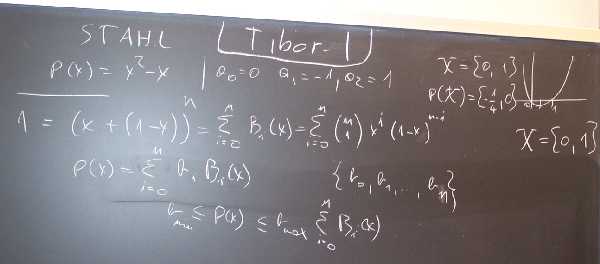 STAHL
Tibor-1
P(x) = x² - x | a₀=0 a₁=-1, a₂=1
X = {0, 1}
P(X) = {-1/4, 0}
1 = (x + (1-x))ⁿ = Σⁿᵢ₌₀ Bᵢ(x) = Σⁿᵢ₌₀ (n i) xⁱ (1-x)ⁿ⁻ⁱ
X = {0, 1}
P(x) = Σⁿᵢ₌₀ bᵢ Bᵢ(x) {b₀, b₁, ..., bₙ}
b_min ≤ P(x) ≤ b_max Σⁿᵢ₌₀ Bᵢ(x)